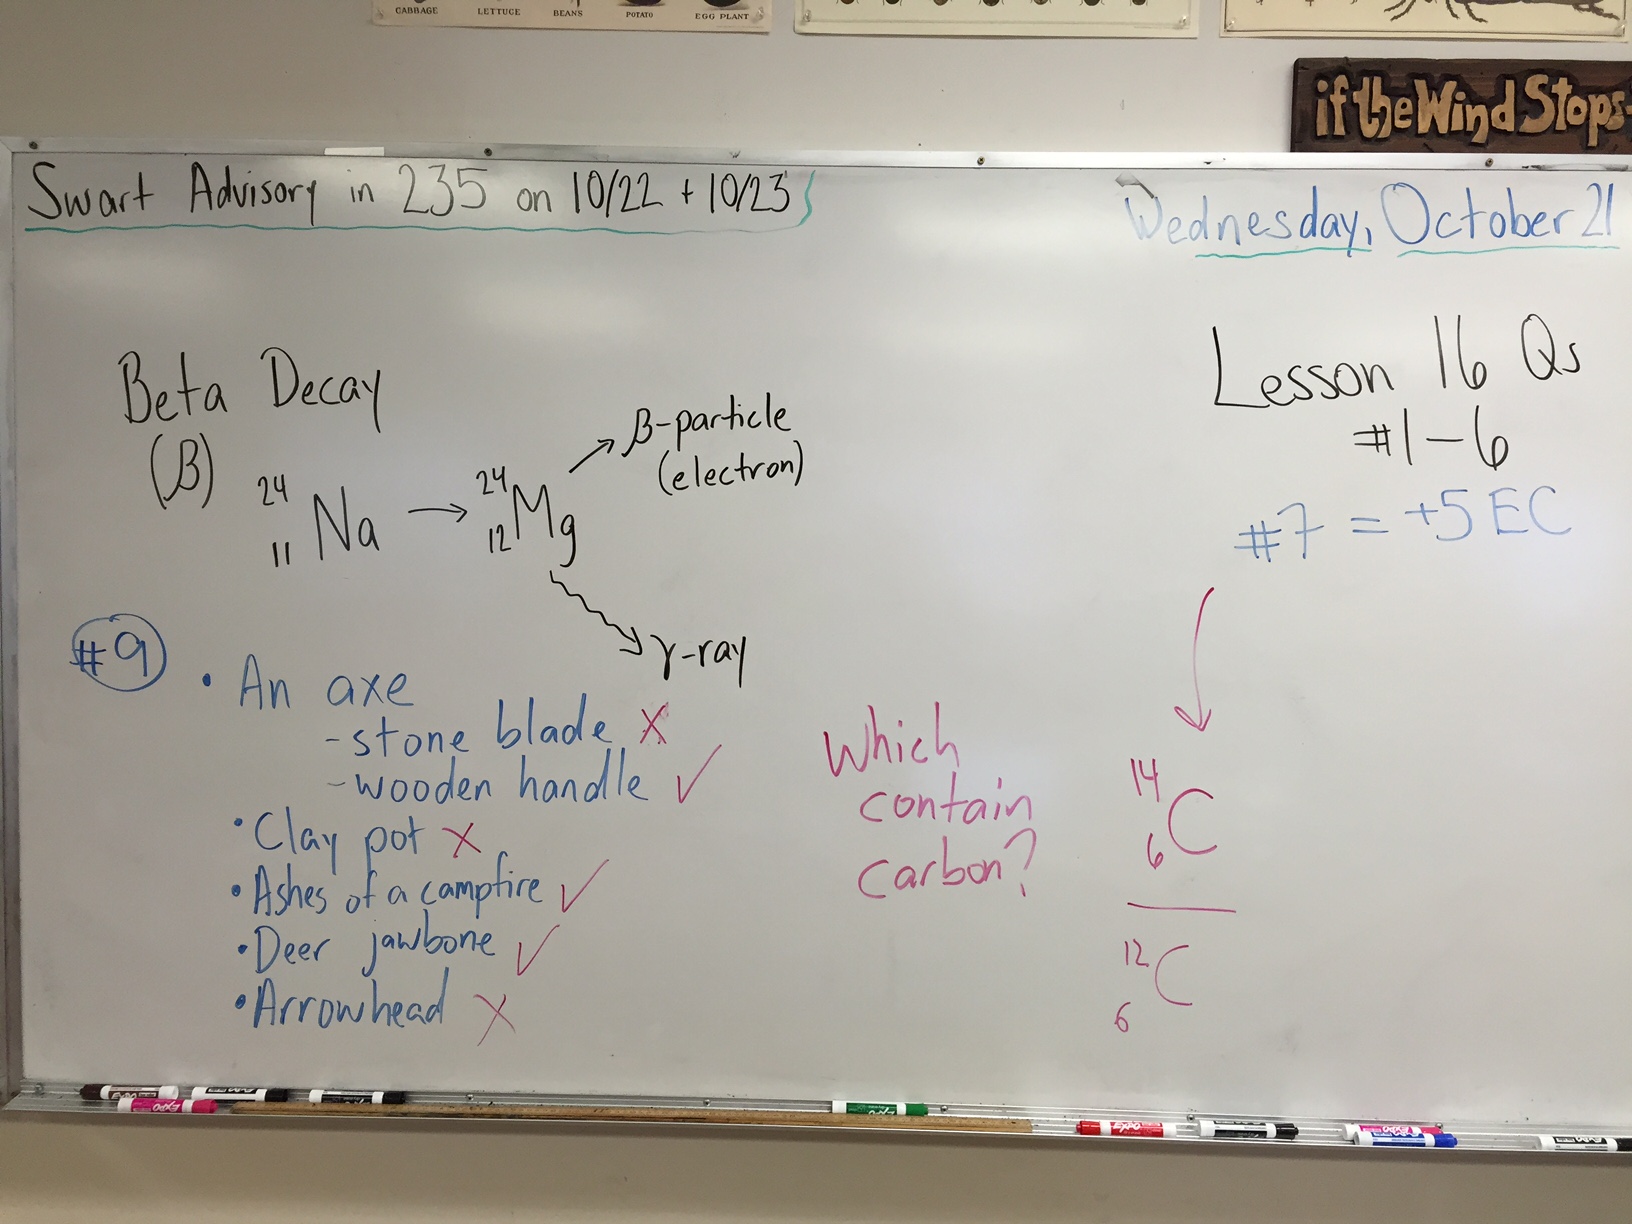 CABBAGE LETTUCE BEANS POTATO EGG PLANT
if the Wind Stops
Swart Advisory in 235 on 10/22 + 10/23
Wednesday, October 21
Beta Decay
(β)
24
11 Na → 24
12 Mg
β-particle
(electron)
γ-ray
Lesson 16 Qs
#1-6
#7 = +5 EC
#9
• An axe
- stone blade X
- wooden handle ✓
• Clay pot X
• Ashes of a campfire ✓
• Deer jawbone ✓
• Arrowhead X
Which
contain
carbon?
14
6 C
12
6 C
EXPO